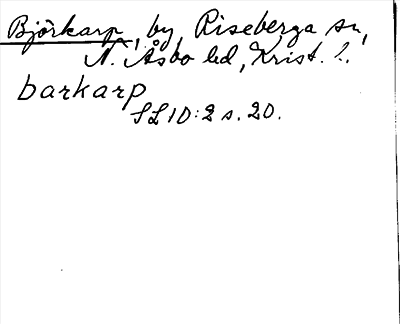 Björkarp, by, Riseberga sn,
N. Åsbo hd, Krist. l.
barkarp
SL 10:2 s. 20.